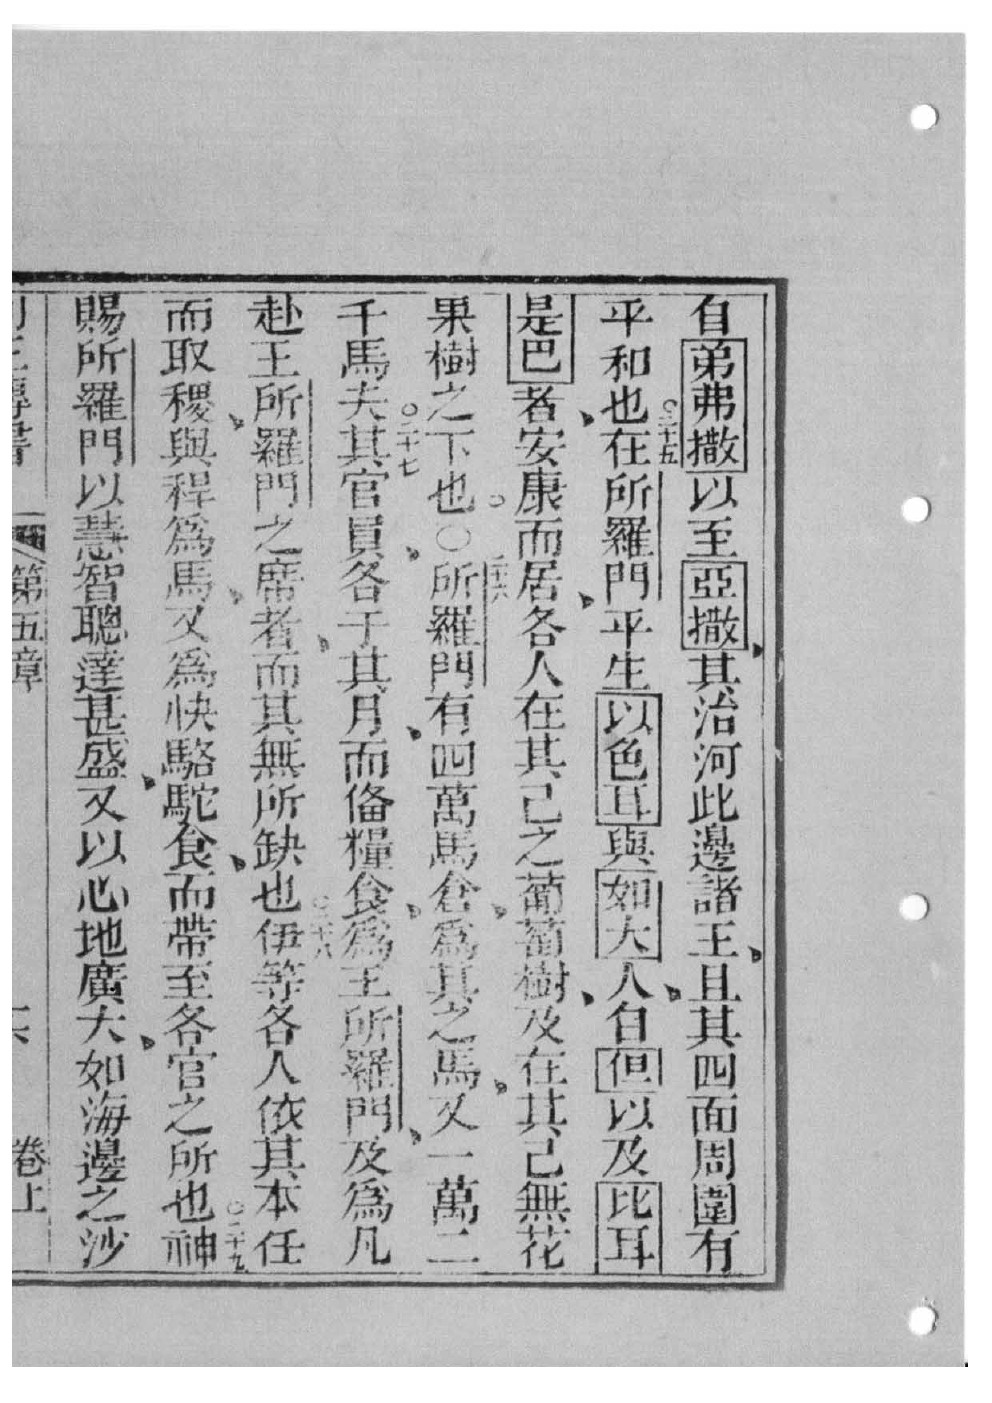 自弟弗撒以至亞撒其治河此邊諸王且其四面周圍有
平和也○二十五在所羅門平生以色耳與如大人自但以及比耳
是巴者安康而居各人在其己之葡萄樹及在其己無花
果樹之下也○○二十六所羅門有四萬馬倉爲其之馬又一萬二
千馬夫○二十七其官員各于其月而俻糧食爲王所羅門及爲凡
赴王所羅門之席者而其無所缺也○二十八伊等各人依其本任
而取稷與稈爲馬又爲快駱駝食而帶至各官之所也○二十九神
賜所羅門以慧智聰達甚盛又以心地廣大如海邊之沙
列王傳書 第五章 卷上